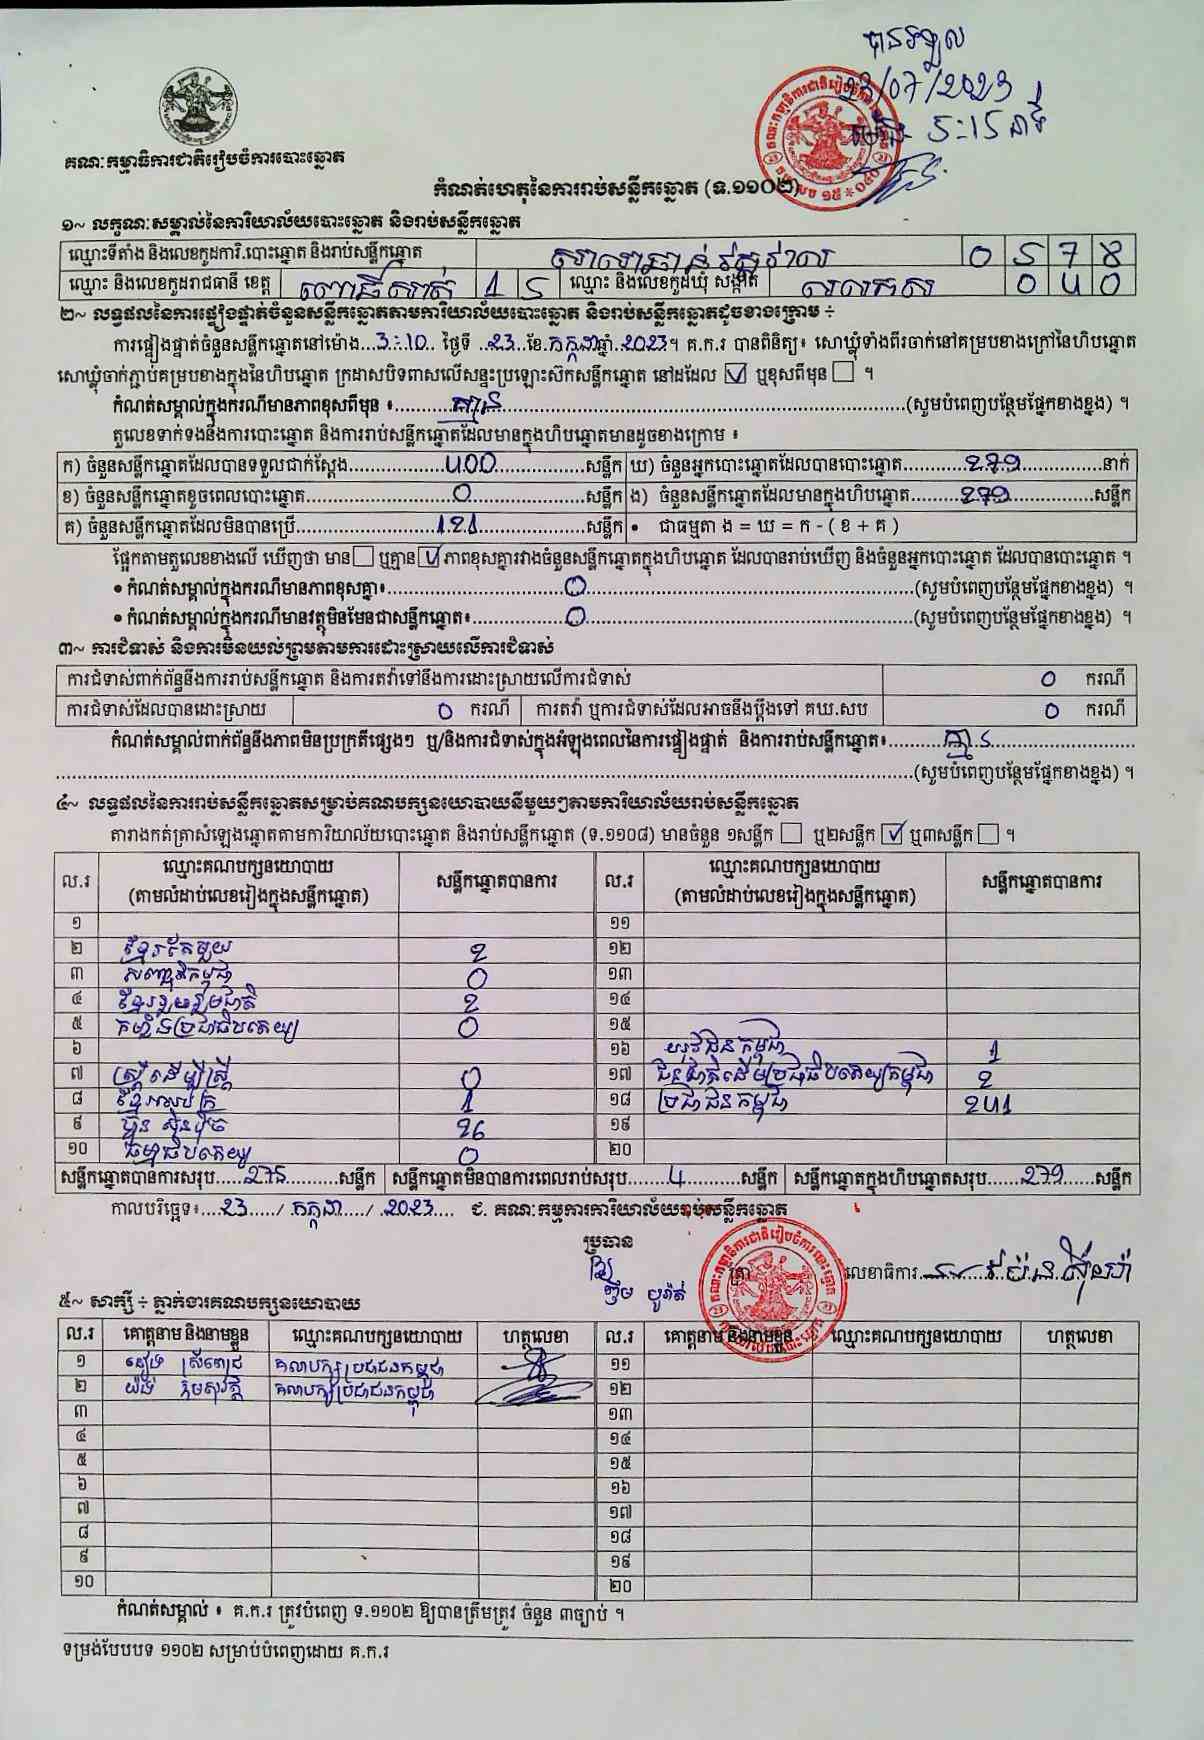 បានទទួល
23/07/2023
ម៉ោង 5:15 នាទី
គណៈកម្មាធិការជាតិរៀបចំការបោះឆ្នោត
កំណត់ហេតុនៃការរាប់សន្លឹកឆ្នោត (ទ.១១០២)
១~ លក្ខណៈសម្គាល់នៃការិយាល័យបោះឆ្នោត និងរាប់សន្លឹកឆ្នោត
ឈ្មោះទីតាំង និងលេខកូដការិ.បោះឆ្នោត និងរាប់សន្លឹកឆ្នោត 0 5 7 8
ឈ្មោះ និងលេខកូដរាជធានី ខេត្ត ពោធិ៍សាត់ 1 5 ឈ្មោះ និងលេខកូដឃុំ សង្កាត់ 0 4 0
២~ លទ្ធផលនៃការផ្ទៀងផ្ទាត់ចំនួនសន្លឹកឆ្នោតតាមការិយាល័យបោះឆ្នោត និងរាប់សន្លឹកឆ្នោតដូចខាងក្រោម ÷
ការផ្ទៀងផ្ទាត់ចំនួនសន្លឹកឆ្នោតនៅម៉ោង...3:10.. ថ្ងៃទី ..23.ខែ.កក្កដាឆ្នាំ..2023។ គ.ក.រ បានពិនិត្យ៖ សោឃ្លុំទាំងពីរចាក់នៅគម្របខាងក្រៅនៃហិបឆ្នោត
សោឃ្លុំចាក់ភ្ជាប់គម្របខាងក្នុងនៃហិបឆ្នោត ក្រដាសបិទពាសលើសន្ទះប្រឡោះស៊កសន្លឹកឆ្នោត នៅដដែល ☑ ឬខុសពីមុន ☐ ។
កំណត់សម្គាល់ក្នុងករណីមានភាពខុសពីមុន ៖..........គ្មាន..........(សូមបំពេញបន្ថែមផ្នែកខាងខ្នង) ។
តួលេខទាក់ទងនឹងការបោះឆ្នោត និងការរាប់សន្លឹកឆ្នោតដែលមានក្នុងហិបឆ្នោតមានដូចខាងក្រោម ៖
ក) ចំនួនសន្លឹកឆ្នោតដែលបានទទួលជាក់ស្តែង..........400..........សន្លឹក ឃ) ចំនួនអ្នកបោះឆ្នោតដែលបានបោះឆ្នោត..........279..........នាក់
ខ) ចំនួនសន្លឹកឆ្នោតខូចពេលបោះឆ្នោត..........0..........សន្លឹក ង) ចំនួនសន្លឹកឆ្នោតដែលមានក្នុងហិបឆ្នោត..........279..........សន្លឹក
គ) ចំនួនសន្លឹកឆ្នោតដែលមិនបានប្រើ..........121..........សន្លឹក • ជាធម្មតា ង = ឃ = ក - ( ខ + គ )
ផ្អែកតាមតួលេខខាងលើ ឃើញថា មាន ☐ ឬគ្មាន ☑ ភាពខុសគ្នារវាងចំនួនសន្លឹកឆ្នោតក្នុងហិបឆ្នោត ដែលបានរាប់ឃើញ និងចំនួនអ្នកបោះឆ្នោត ដែលបានបោះឆ្នោត ។
• កំណត់សម្គាល់ក្នុងករណីមានភាពខុសគ្នា៖..........0..........(សូមបំពេញបន្ថែមផ្នែកខាងខ្នង) ។
• កំណត់សម្គាល់ក្នុងករណីមានវត្ថុមិនមែនជាសន្លឹកឆ្នោត៖..........0..........(សូមបំពេញបន្ថែមផ្នែកខាងខ្នង) ។
៣~ ការជំទាស់ និងការមិនយល់ព្រមតាមការដោះស្រាយលើការជំទាស់
ការជំទាស់ពាក់ព័ន្ធនឹងការរាប់សន្លឹកឆ្នោត និងការតវ៉ាទៅនឹងការដោះស្រាយលើការជំទាស់ 0 ករណី
ការជំទាស់ដែលបានដោះស្រាយ 0 ករណី ការតវ៉ា ឬការជំទាស់ដែលអាចនឹងប្តឹងទៅ គឃ.សប 0 ករណី
កំណត់សម្គាល់ពាក់ព័ន្ធនឹងភាពមិនប្រក្រតីផ្សេងៗ ឬ/និងការជំទាស់ក្នុងអំឡុងពេលនៃការផ្ទៀងផ្ទាត់ និងការរាប់សន្លឹកឆ្នោត៖..........គ្មាន..........
..........(សូមបំពេញបន្ថែមផ្នែកខាងខ្នង) ។
៤~ លទ្ធផលនៃការរាប់សន្លឹកឆ្នោតសម្រាប់គណបក្សនយោបាយនីមួយៗតាមការិយាល័យរាប់សន្លឹកឆ្នោត
តារាងកត់ត្រាសំឡេងឆ្នោតតាមការិយាល័យបោះឆ្នោត និងរាប់សន្លឹកឆ្នោត (ទ.១១០៨) មានចំនួន ១សន្លឹក ☐ ឬ២សន្លឹក ☑ ឬ៣សន្លឹក ☐ ។
ល.រ ឈ្មោះគណបក្សនយោបាយ (តាមលំដាប់លេខរៀងក្នុងសន្លឹកឆ្នោត) សន្លឹកឆ្នោតបានការ ល.រ ឈ្មោះគណបក្សនយោបាយ (តាមលំដាប់លេខរៀងក្នុងសន្លឹកឆ្នោត) សន្លឹកឆ្នោតបានការ
១ ១១
២ ខ្មែរតែមួយ 2 ១២
៣ សញ្ជាតិកម្ពុជា 0 ១៣
៤ ខ្មែររួបរួមជាតិ 2 ១៤
៥ កម្លាំងប្រជាធិបតេយ្យ 0 ១៥
៦ ១៦ យុវជនកម្ពុជា 1
៧ ស្ត្រីដើម្បីស្ត្រី 0 ១៧ ជនជាតិដើមប្រជាធិបតេយ្យកម្ពុជា 2
៨ ខ្មែរអភិរក្ស 1 ១៨ ប្រជាជនកម្ពុជា 241
៩ ហ៊្វុនស៊ិនប៉ិច 26 ១៩
១០ ធម្មាធិបតេយ្យ 0 ២០
សន្លឹកឆ្នោតបានការសរុប......275......សន្លឹក សន្លឹកឆ្នោតមិនបានការពេលរាប់សរុប......4......សន្លឹក សន្លឹកឆ្នោតក្នុងហិបឆ្នោតសរុប......279......សន្លឹក
កាលបរិច្ឆេទ៖....23...../ កក្កដា..../ .2023.... ជ. គណៈកម្មការការិយាល័យរាប់សន្លឹកឆ្នោត
ប្រធាន
ត្រា លេខាធិការ
៥~ សាក្សី ÷ ភ្នាក់ងារគណបក្សនយោបាយ
ល.រ គោត្តនាម និងនាមខ្លួន ឈ្មោះគណបក្សនយោបាយ ហត្ថលេខា ល.រ គោត្តនាម និងនាមខ្លួន ឈ្មោះគណបក្សនយោបាយ ហត្ថលេខា
១ គណបក្សប្រជាជនកម្ពុជា ១១
២ គណបក្សប្រជាជនកម្ពុជា ១២
៣ ១៣
៤ ១៤
៥ ១៥
៦ ១៦
៧ ១៧
៨ ១៨
៩ ១៩
១០ ២០
កំណត់សម្គាល់ ៖ គ.ក.រ ត្រូវបំពេញ ទ.១១០២ ឱ្យបានត្រឹមត្រូវ ចំនួន ៣ច្បាប់ ។
ទម្រង់បែបបទ ១១០២ សម្រាប់បំពេញដោយ គ.ក.រ